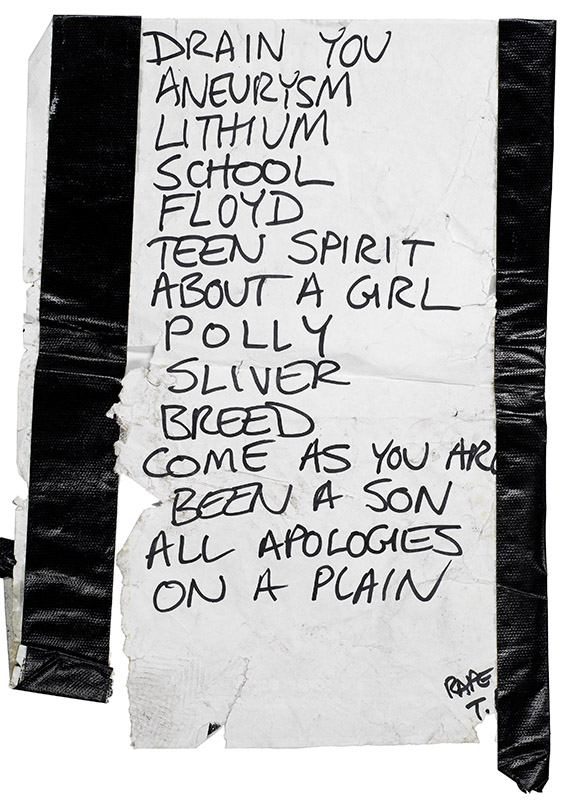 DRAIN YOU
ANEURYSM
LITHIUM
SCHOOL
FLOYD
TEEN SPIRIT
ABOUT A GIRL
POLLY
SLIVER
BREED
COME AS YOU ARE
BEEN A SON
ALL APOLOGIES
ON A PLAIN
RAPE
T.